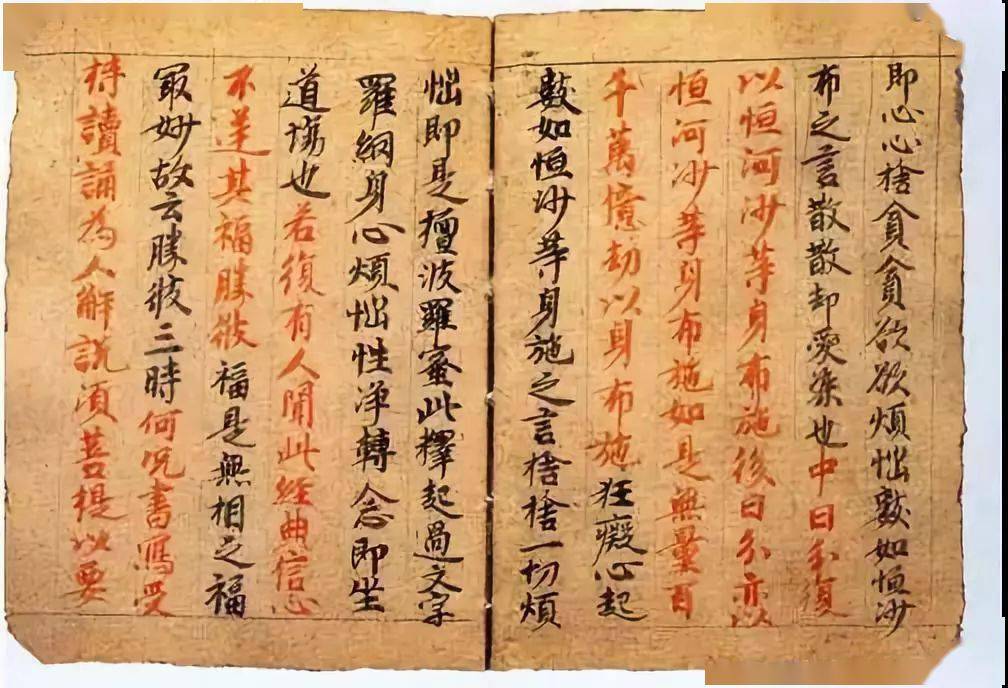 即心心捨貪貪欲欲煩惱數如恒沙
布之言散散却愛染也中日分復
以恒河沙等身布施後日分亦以
恒河沙等身布施如是無量百
千萬憶劫以身布施狂癡心起
數如恒沙等身施之言捨捨一切煩
惱即是檀波羅蜜此釋起過文字
羅網身心煩惱性净轉念即坐
道場也若復有人聞此經典信心
不逆其福勝彼福是無相之福
最妙故云勝彼三時何况書寫受
持讀誦為人解説須菩提以要